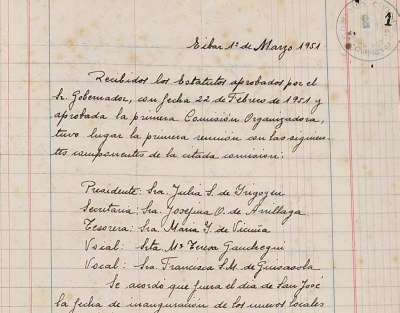 1
Eibar 1º de Marzo 1951
Recibidos los Estatutos aprobados por el
Sr. Gobernador, con fecha 22 de Febrero de 1951 y
aprobada la primera Comisión Organizadora,
tuvo lugar la primera reunión con las siguien-
tes componentes de la citada comisión:
Presidente: Sra. Julia S. de Yrigoyen
Secretaria: Sra. Josefina O. de Arillaga
Tesorera: Sra. Maria Y. de Vicuña
Vocal: Srta Mª Teresa Ganchegui
Vocal: Sra. Francisca S.M. de Guisasola
Se acordó que fuera el dia de San José
la fecha de inauguración de los nuevos locales